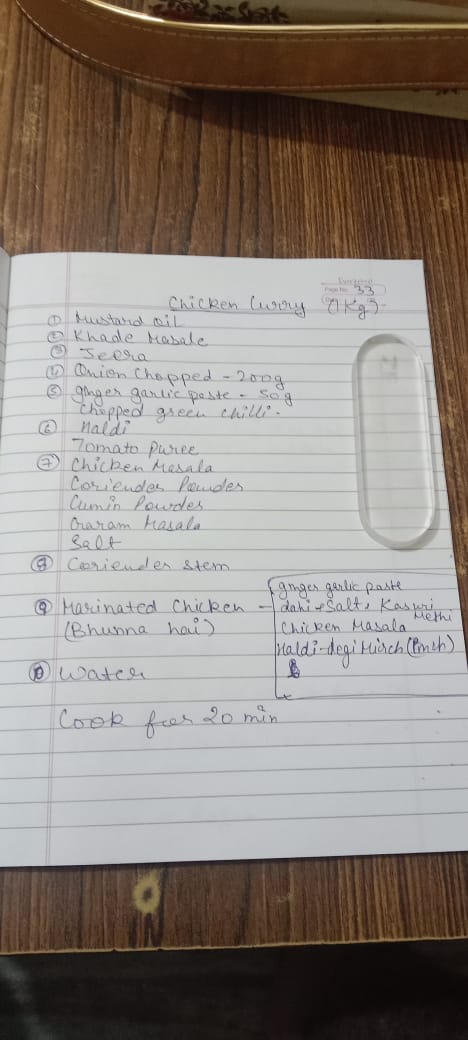 Page No. 33
Chicken Curry (1Kg)
① Mustard oil
② Khade Masale
③ Jeera
④ Onion Chopped - 200g
⑤ ginger garlic paste - 50g
Chopped green chilli.
⑥ Haldi
Tomato Puree
⑦ Chicken Masala
Coriender Powder
Cumin Powder
Garam Masala
Salt
⑧ Coriender stem
⑨ Marinated Chicken -
(Bhunna hai)
ginger garlic paste
dahi, Salt, Kasuri Methi
Chicken Masala
Haldi - degi Mirch (Pinch)
⑩ Water
Cook for 20 min